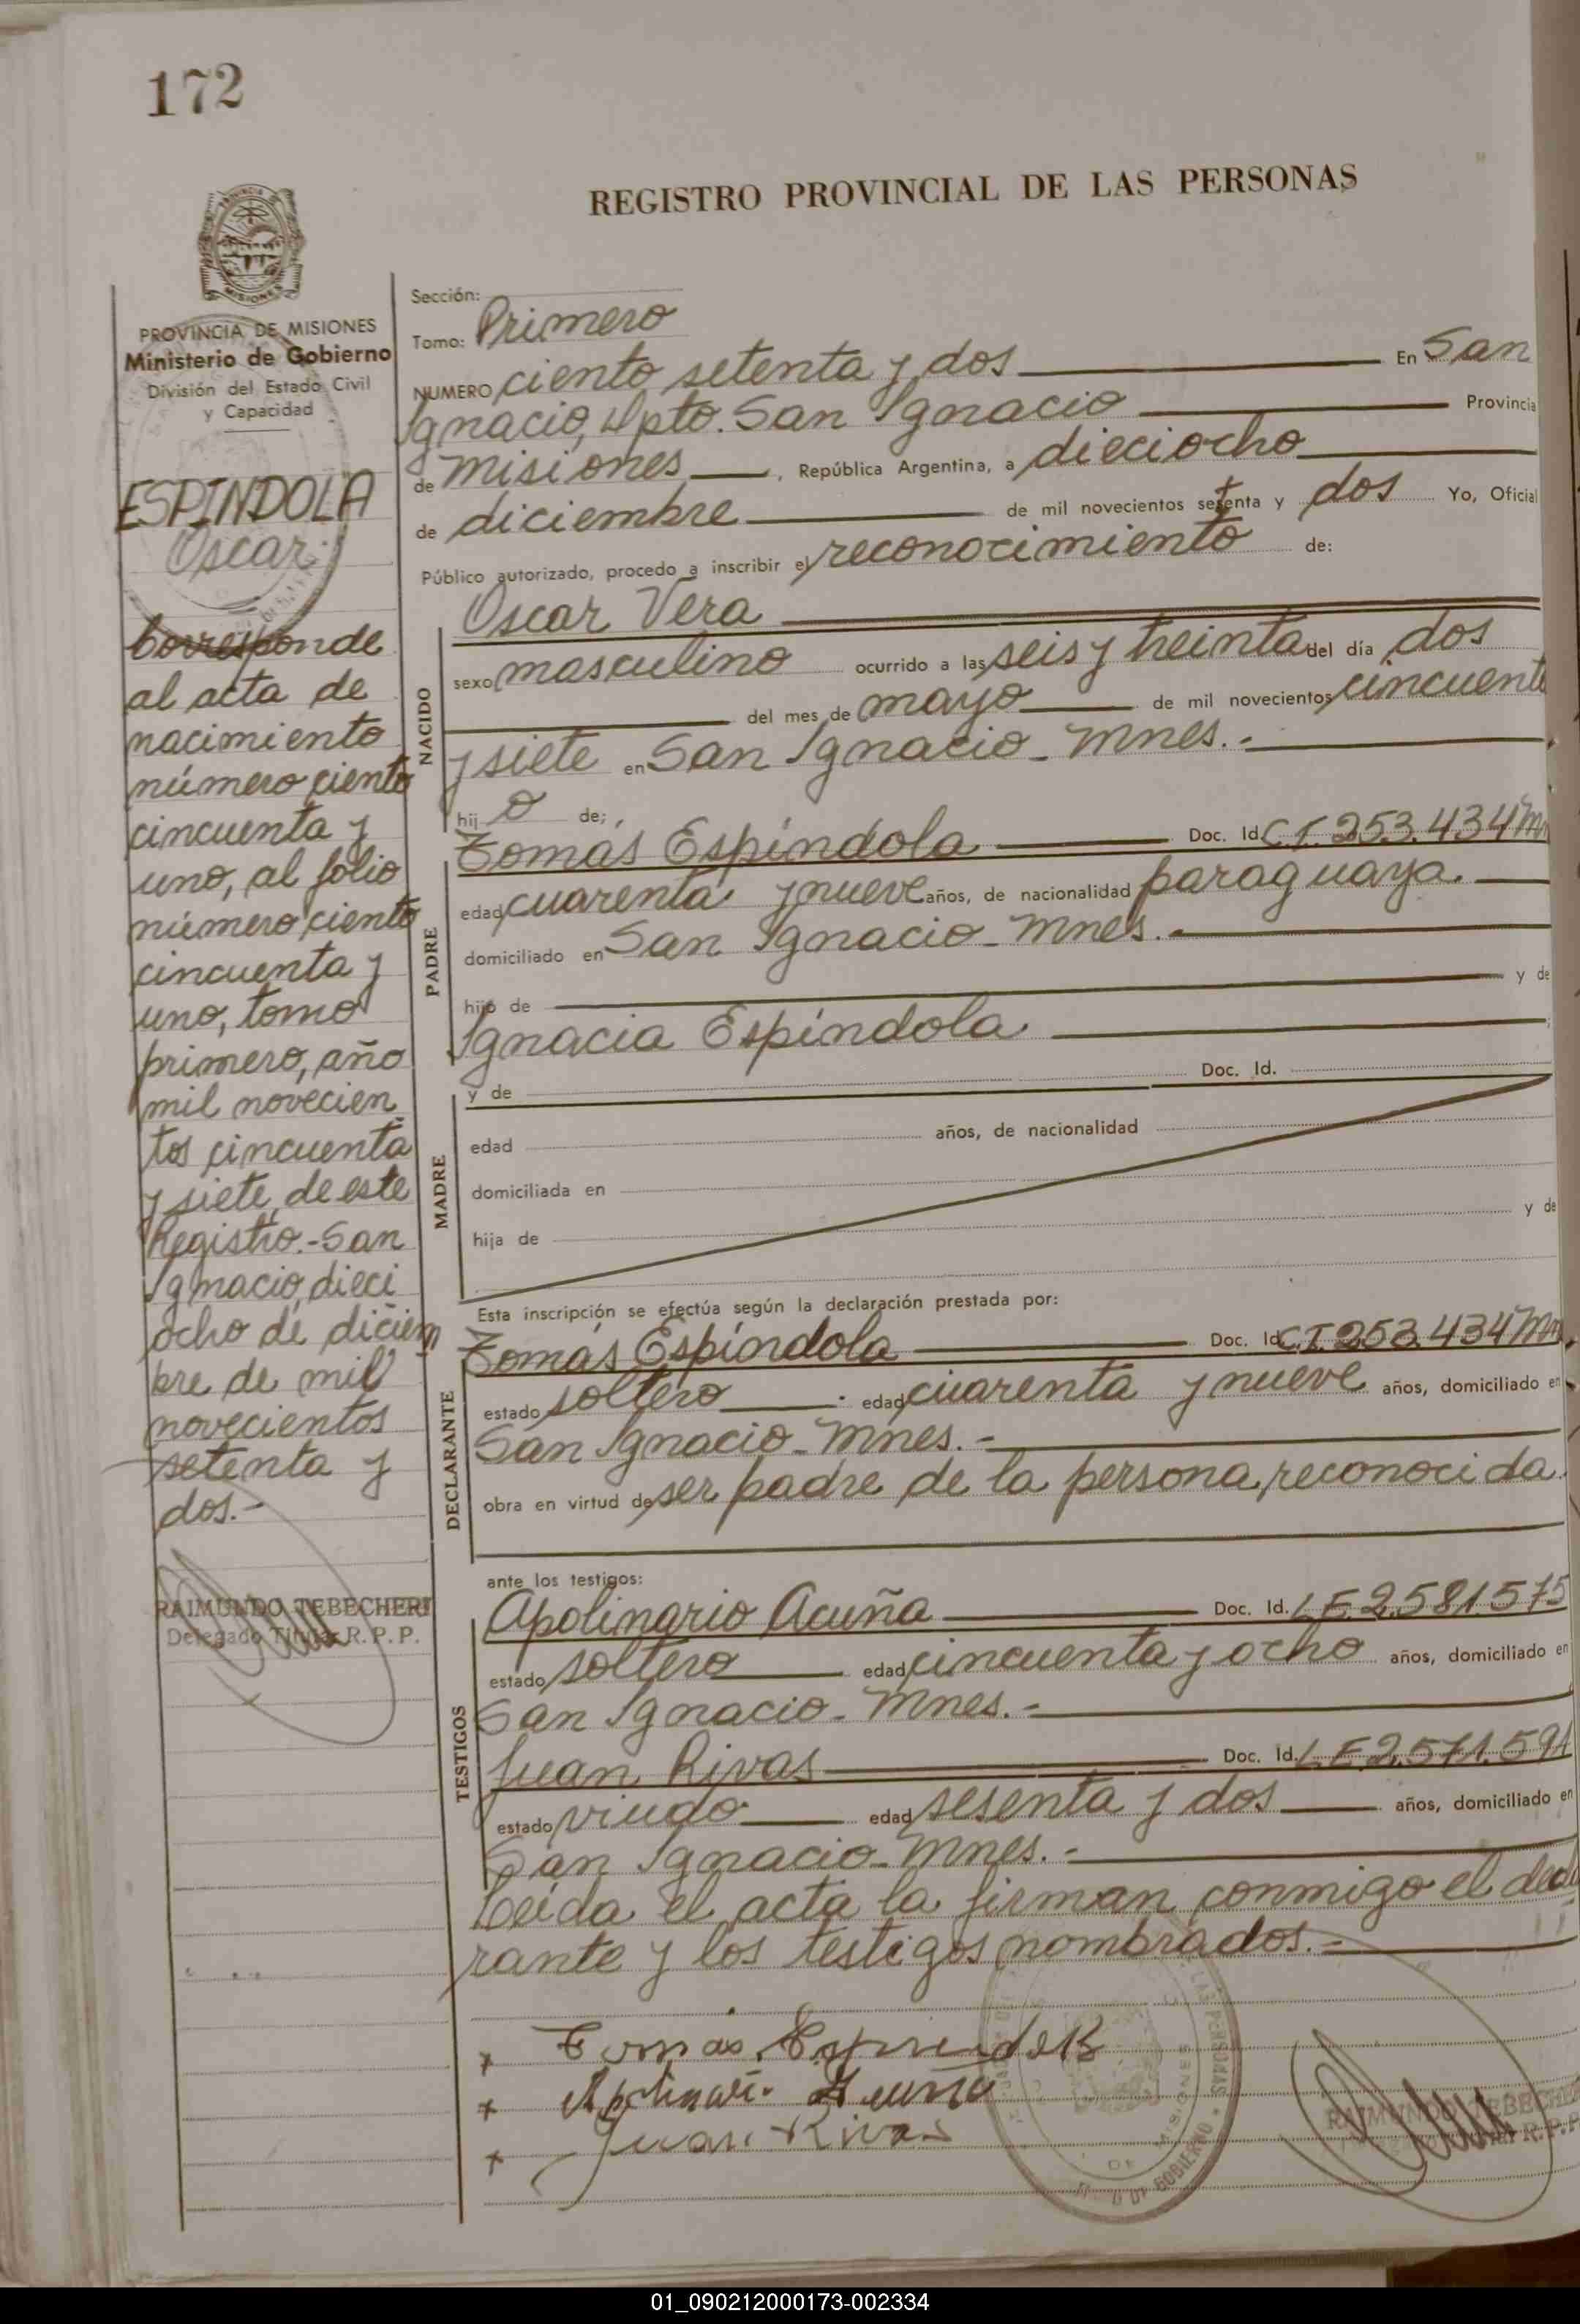 172
REGISTRO PROVINCIAL DE LAS PERSONAS
PROVINCIA DE MISIONES
Ministerio de Gobierno
División del Estado Civil
y Capacidad
ESPINDOLA
Oscar
Corresponde
al acta de
nacimiento
número ciento
cincuenta y
uno, al folio
número ciento
cincuenta y
uno, tomo
primero, año
mil novecien
tos cincuenta
y siete, de este
Registro.- San
Ignacio, dieci
ocho de diciem
bre de mil
novecientos
setenta y
dos.-
RAIMUNDO TEBECHERI
Delegado Titular R.P.P.
Sección:
Tomo: Primero
NUMERO ciento setenta y dos En San
Ignacio, Dpto. San Ignacio Provincia
de Misiones, República Argentina, a dieciocho
de diciembre de mil novecientos setenta y dos Yo, Oficial
Público autorizado, procedo a inscribir el reconocimiento de:
Oscar Vera
NACIDO
sexo masculino ocurrido a las seis y treinta del día dos
del mes de mayo de mil novecientos cincuenta
y siete en San Ignacio - Mnes.-
hijo de;
PADRE
Tomás Espíndola Doc. Id. C.I. 253.434 Mn
edad cuarenta y nueve años, de nacionalidad paraguaya.
domiciliado en San Ignacio - Mnes.-
hijo de y de
Ignacia Espíndola
MADRE
y de Doc. Id.
edad años, de nacionalidad
domiciliada en
hija de y de
Esta inscripción se efectúa según la declaración prestada por:
DECLARANTE
Tomás Espíndola Doc. Id. C.I. 253.434 Mn
estado soltero edad cuarenta y nueve años, domiciliado en
San Ignacio - Mnes.-
obra en virtud de ser padre de la persona reconocida.
ante los testigos:
TESTIGOS
Apolinario Acuña Doc. Id. L.E. 2.581.575
estado soltero edad cincuenta y ocho años, domiciliado en
San Ignacio - Mnes.-
Juan Rivas Doc. Id. L.E. 2.571.591
estado viudo edad sesenta y dos años, domiciliado en
San Ignacio - Mnes.-
Leida el acta la firman conmigo el decla
rante y los testigos nombrados.-
x Tomás Espindola
x Apolinario Acuña
x Juan Rivas
RAIMUNDO TEBECHERI
01_090212000173-002334